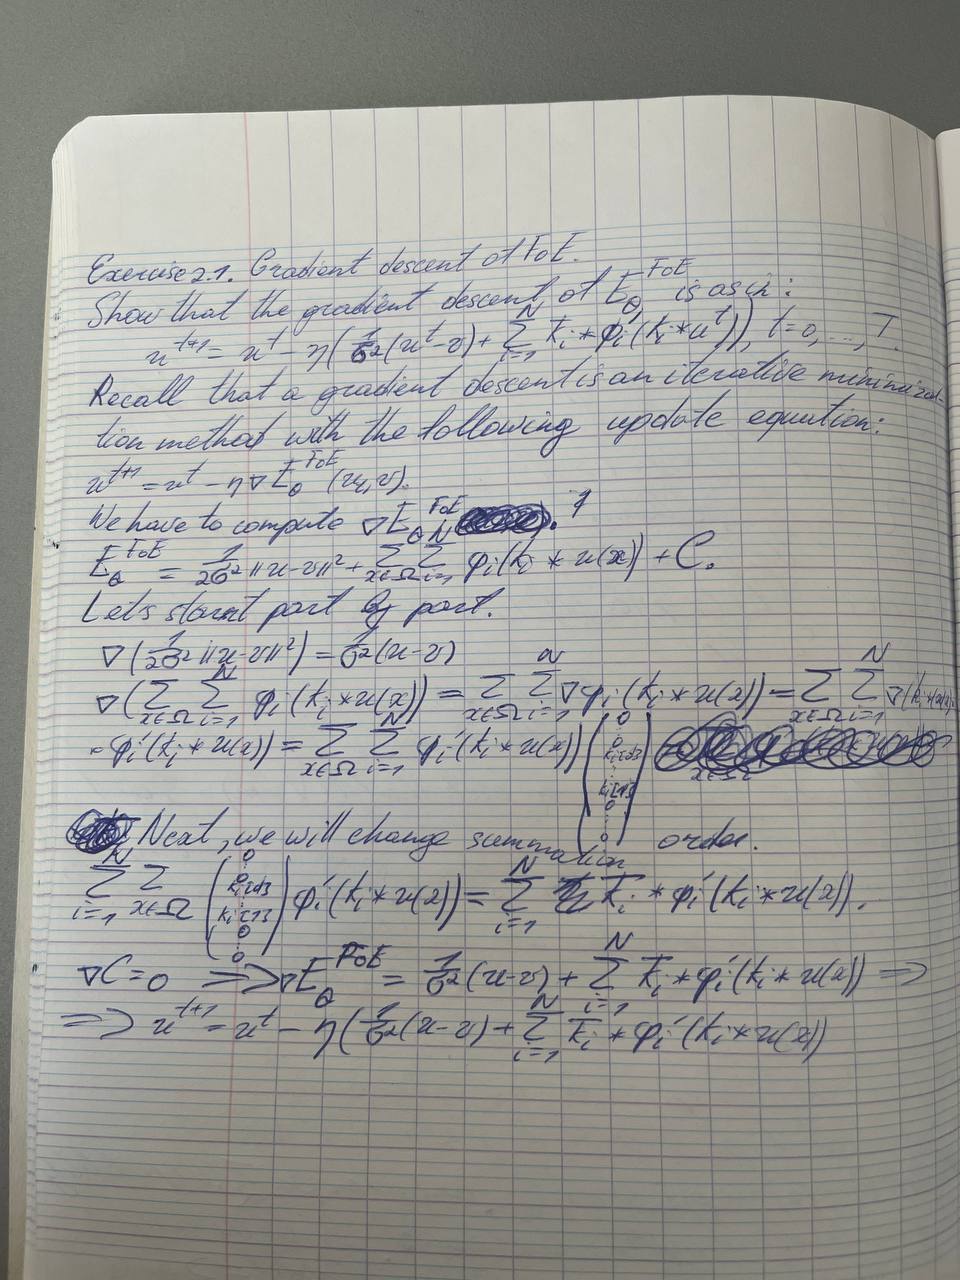 Exercise 2.1. Gradient descent of FoE.
Show that the gradient descent of E_θ^FoE is as in:
u^{t+1} = u^t - η(1/σ²(u^t-v) + Σ_{i=1}^N k̄_i * φ_i'(k_i * u^t)), t=0,...,T.
Recall that a gradient descent is an iterative minimiza-
tion method with the following update equation:
u^{t+1} = u^t - η∇E_θ^FoE(u,v).
We have to compute ∇E_θ^FoE.
E_θ^FoE = 1/2σ² ||u-v||² + Σ_{x∈Ω} Σ_{i=1}^N φ_i(k_i * u(x)) + C.
Let's start part by part.
∇(1/2σ² ||u-v||²) = 1/σ²(u-v)
∇(Σ_{x∈Ω} Σ_{i=1}^N φ_i(k_i * u(x)) = Σ_{x∈Ω} Σ_{i=1}^N ∇φ_i(k_i * u(x)) = Σ_{x∈Ω} Σ_{i=1}^N ∇(k_i * u(x))
· φ_i'(k_i * u(x)) = Σ_{x∈Ω} Σ_{i=1}^N φ_i'(k_i * u(x)) (0 ⋮ 0 k_i[d] ⋮ k_i[1] 0 ⋮ 0)
Next, we will change summation order.
Σ_{i=1}^N Σ_{x∈Ω} (0 ⋮ 0 k_i[d] ⋮ k_i[1] 0 ⋮ 0) φ_i'(k_i * u(x)) = Σ_{i=1}^N k̄_i * φ_i'(k_i * u(x)).
∇C = 0 ⇒ ∇E_θ^FoE = 1/σ²(u-v) + Σ_{i=1}^N k̄_i * φ_i'(k_i * u(x)) ⇒
⇒ u^{t+1} = u^t - η(1/σ²(u-v) + Σ_{i=1}^N k̄_i * φ_i'(k_i * u(x))